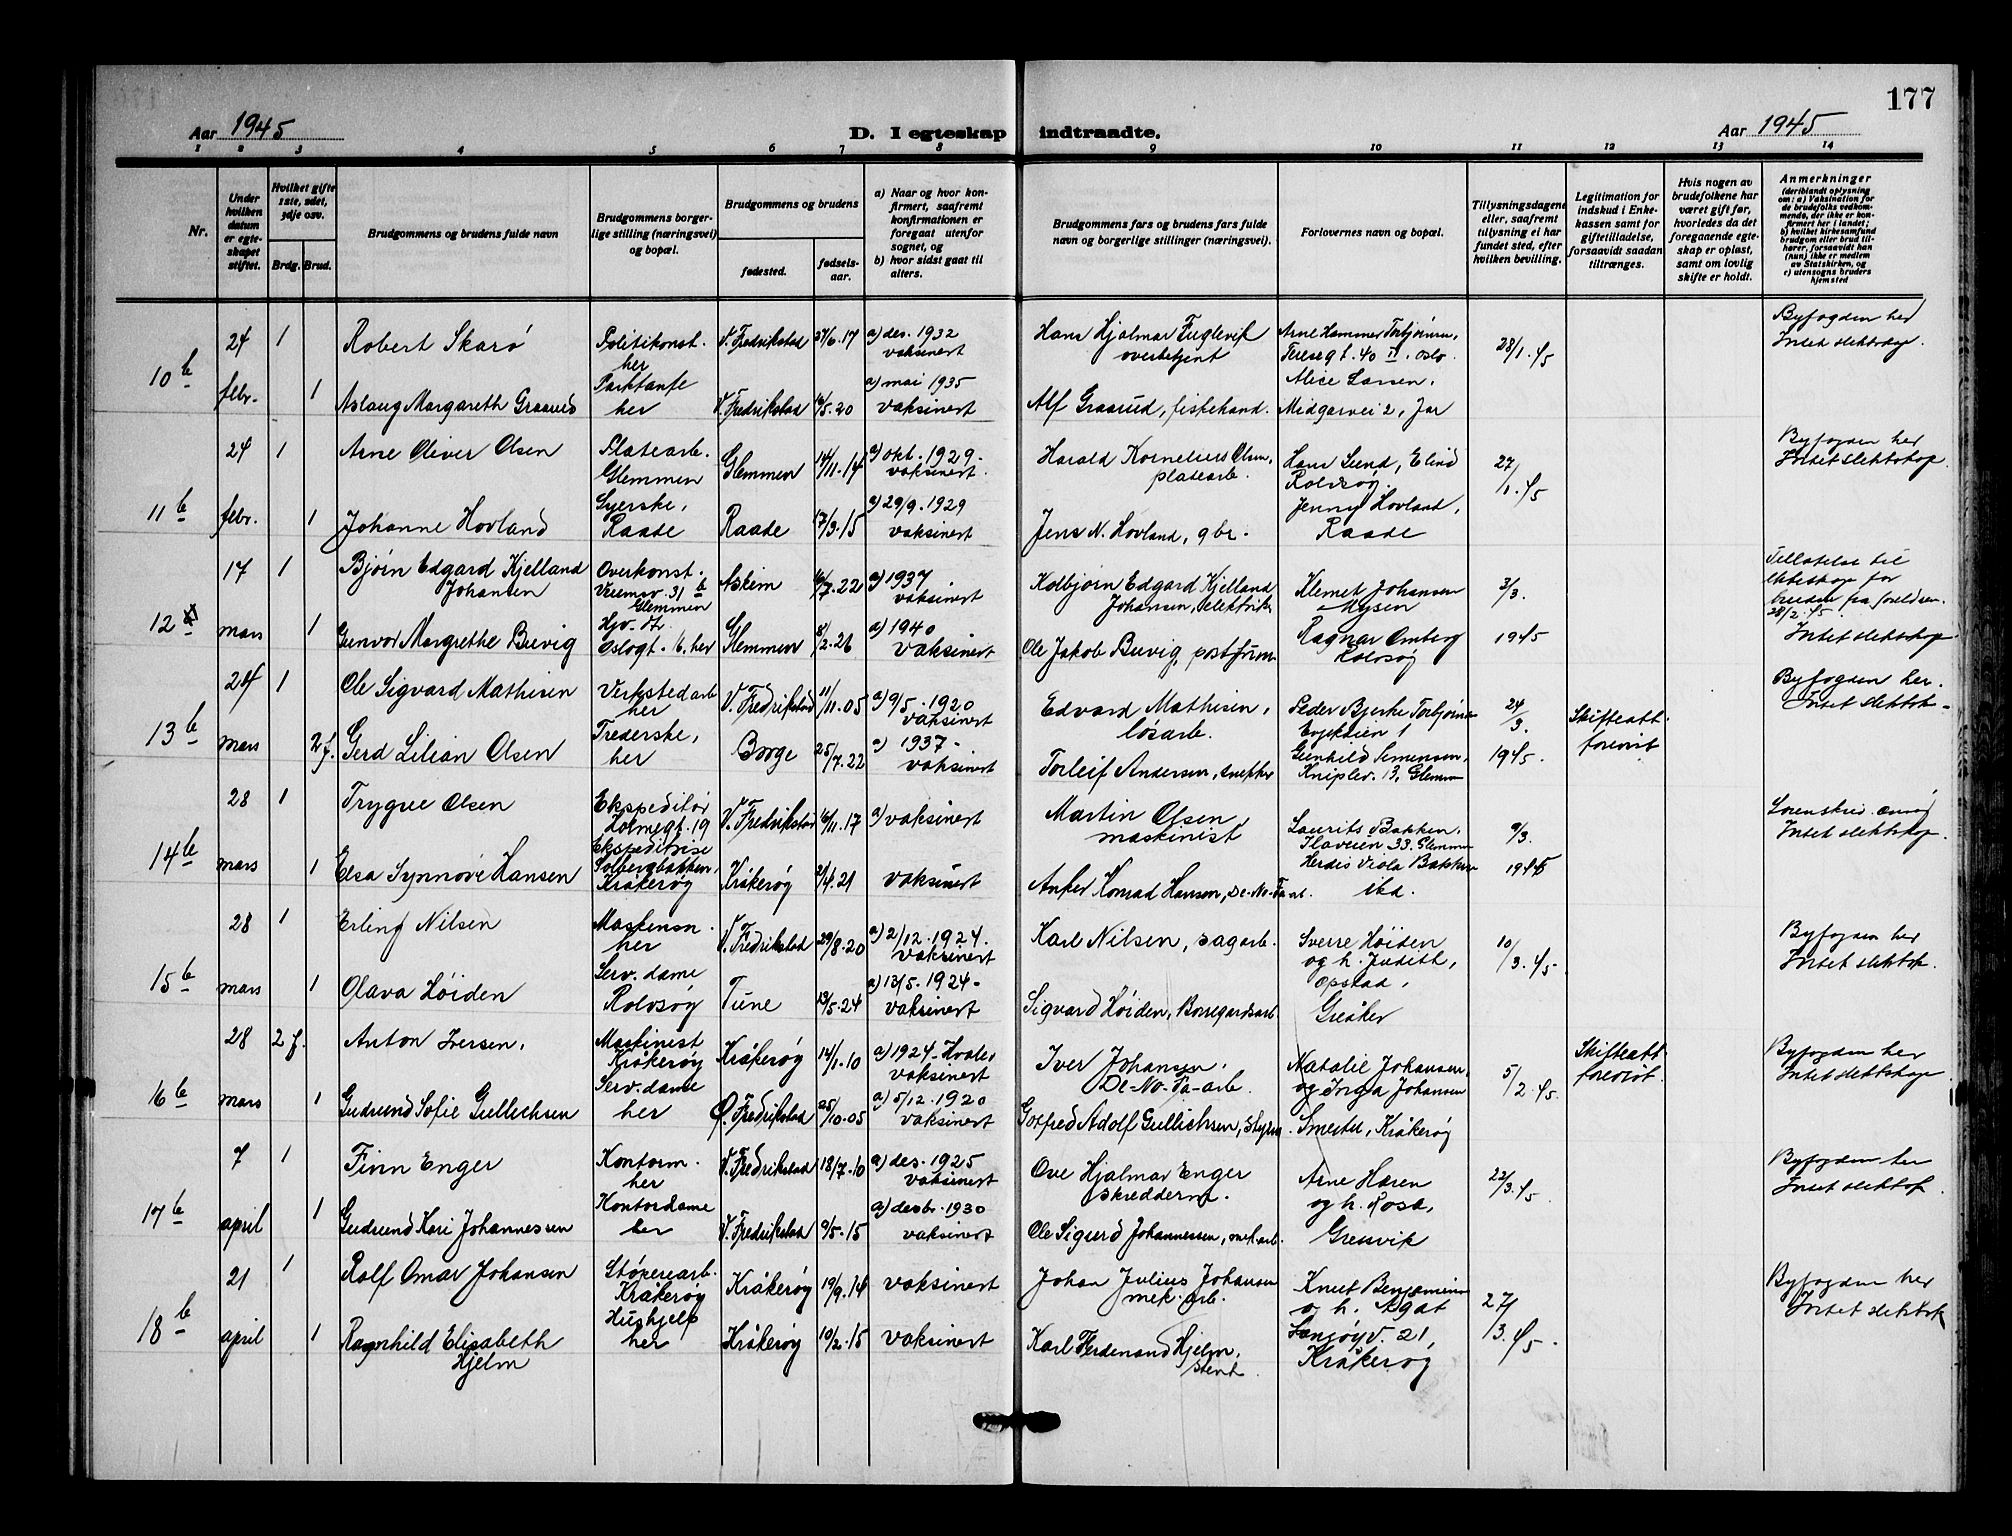 177
Aar 1945
D. I egteskap indtraadte.
Aar 1945
1 2 3 4 5 6 7 8 9 10 11 12 13 14
Nr.
Under hvilken datum er egteskapet stiftet.
Hvilket gifte 1ste, 2det, 3dje osv.
Brdg. Brud.
Brudgommens og brudens fulde navn
Brudgommens borgerlige stilling (næringsvei) og bopæl.
Brudgommens og brudens
fødested.
fødselsaar.
a) Naar og hvor konfirmert, saafremt konfirmationen er foregaat utenfor sognet, og
b) hvor sidst gaat til alters.
Brudgommens fars og brudens fars fulde navn og borgerlige stillinger (næringsvei).
Forlovernes navn og bopæl.
Tillysningsdagene eller, saafremt tillysning ei har fundet sted, efter hvilken bevilling.
Legitimation for indskud i Enkekassen samt for giftetilladelse, forsaavidt saadan tiltrænges.
Hvis nogen av brudefolkene har været gift før, hvorledes da det foregaaende egteskap er opløst, samt om lovlig skifte er holdt.
Anmerkninger
(deriblandt oplysning om: a) Vaksination for de brudefolks vedkommende, der ikke er konfirmert her i landet; b) hvilket kirkesamfund brudgom eller brud tilhører, forsaavidt han (hun) ikke er medlem av Statskirken, og c) utensogns bruders hjemsted
10 b
24 1 Robert Skarø Politikonst. her V. Fredrikstad 27/6.17 a) des. 1932 vaksinert
Hans Hjalmar Fuglevik overbetjent
Arne Hammer Torbjørnsen, Teresegt. 40 II, Oslo.
28/1.45
Byfogden her
Intet slektskap.
febr. 1 Aslaug Margareth Graarud her V. Fredrikstad /5.20 a) mai 1935 vaksinert
Alf Graarud, fiskehand.
Alice Larsen, Midgarvei 2, Jar
11 b
24 1 Arne Oliver Olsen Platearb. Glemmen Glemmen 14/11.14 a) okt. 1929. vaksinert.
Harald Kornelius Olsen, platearb.
Hans Lund, Rolvsøy.
27/1.45
Byfogden her
Intet slektskap.
febr. 1 Johanne Hovland Syerske, Raade Raade 17/3.15 a) 29/9.1929 vaksinert
Jens N. Hovland, gbr.
Jenny Hovland, Raade
12
17 1 Bjørn Edgard Kjelland Johansen Overkonst. 31 b Glemmen Askim /7.22 a) 1937 vaksinert
Kolbjørn Edgard Kjelland Johansen, elektrik.
Klemet Johansen Mysen
3/3.
Tillatelse til ekteskap for bruden fra foreldren. 28/2.45.
mars 1 Gunvor Margrethe Buvig Hjv. dt. Oslogt. 16, her Glemmen 8/2.26 a) 1940 vaksinert
Ole Jakob Buvig, postfunn.
Ragnar Omberg Rolvsøy
1945
Intet slektskap
13 b
24 1 Ole Sigvard Mathisen Verkstedarb her V. Fredrikstad 11/11.05 a) 9/5.1920 vaksinert
Edvard Mathisen, løsarb.
Peder Bjerke Torbjørnsen 1
24/3.
Skifteatt. forevist
Byfogden her.
Intet slektsk.
mars 2 f. Gerd Lilian Olsen her Borge 25/7.22 a) 1937. vaksinert
Torleif Andersen, snekker
Gunhild Simensen, Kniplev. 13, Glemm
1945.
14 b
28 1 Trygve Olsen Ekspeditør Holmegt. 19 V. Fredrikstad /11.17 a) vaksinert
Martin Olsen maskinist
Laurits Bakken, Ilaveien 33. Glemmen
9/3.
Sorenskriv.
Intet slektskap.
mars 1 Elsa Synnøve Hansen Ekspeditrise Solbergbakken, Kråkerøy Kråkerøy 2/4.21 vaksinert
Anker Konrad Hansen, De-No-Fa arb.
Herdis Viola Bakken ska.
1945
15 b
28 1 Erling Nilsen her V. Fredrikstad 29/8.20 a) 2/12.1924. vaksinert
Karl Nilsen, sagarb.
Sverre Høiden og h. Judith, Opstad, Greåker
10/3.45
Byfogden her
Intet slektsk.
mars 1 Olava Høiden Serv. dame Rolvsøy Tune 13/5.24 a) 13/5.1924. vaksinert
Sigvard Høiden, Borregaardsarb.
16 b
28 2 f. Anton Iversen, Maskinist Kråkerøy Kråkerøy 14/1.10 a) 1924. Hvaler vaksinert
Iver Johansen, De-No-Fa-arb.
Natalie Johansen, og Inga Johansen
5/2.45.
Skifteatt. forevist.
Byfogden her
Intet slektskap
mars 1 Gudrund Sofie Gullichsen Serv. dame her Ø. Fredrikstad 25/10.05 a) 5/12.1920 vaksinert
Gotfred Adolf Gullichsen, styrm.
Smertu, Kråkerøy
17 b
7 1 Finn Enger Kontorm. her V. Fredrikstad 18/7.10 a) des. 1925 vaksinert
Ove Hjalmar Enger skredderm.
Arne Haren og h. Rosa, Gressvik
22/3.45.
Byfogden her
Intet slektsk.
april 1 Gudrund Kari Johannessen Kontordame her V. Fredrikstad 9/5.15 a) desbr. 1930 vaksinert
Ole Sigurd Johannessen, mek. arb.
18 b
21 1 Rolf Omar Johansen Støperiarb. Kråkerøy Kråkerøy 19/9.14 vaksinert
Johan Julius Johansen mek. arb.
Knut Benjaminsen og h. Agat
27/3.45.
Byfogden her
Intet slektsk
april 1 Ragnhild Elisabeth Hjelm Hushjelp her Kråkerøy 10/2.15 vaksinert
Karl Ferdenand Hjelm, stenh.
Langøyv. 21, Kråkerøy